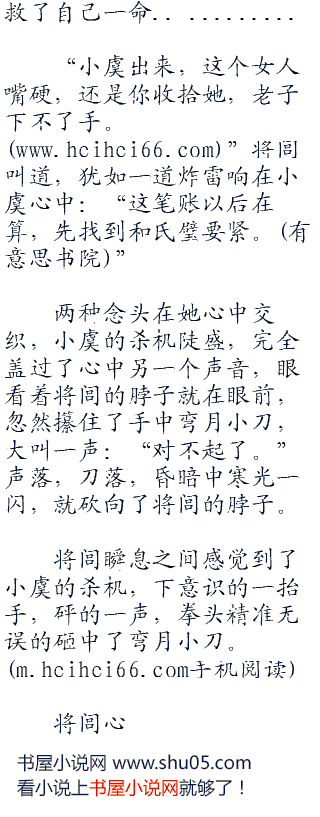 救了自己一命.. .........
“小虞出来，这个女人
嘴硬，还是你收拾她，老子
下不了手。
(www.hcihci66.com)”将闾
叫道，犹如一道炸雷响在小
虞心中：“这笔账以后在
算，先找到和氏璧要紧。(有
意思书院)”
两种念头在她心中交
织，小虞的杀机陡盛，完全
盖过了心中另一个声音，眼
看着将闾的脖子就在眼前，
忽然攥住了手中弯月小刀，
大叫一声：“对不起了。”
声落，刀落，昏暗中寒光一
闪，就砍向了将闾的脖子。
将闾瞬息之间感觉到了
小虞的杀机，下意识的一抬
手，砰的一声，拳头精准无
误的砸中了弯月小刀。
(m.hcihci66.com手机阅读)
将闾心
书屋小说网 www.shu05.com
看小说上书屋小说网就够了！